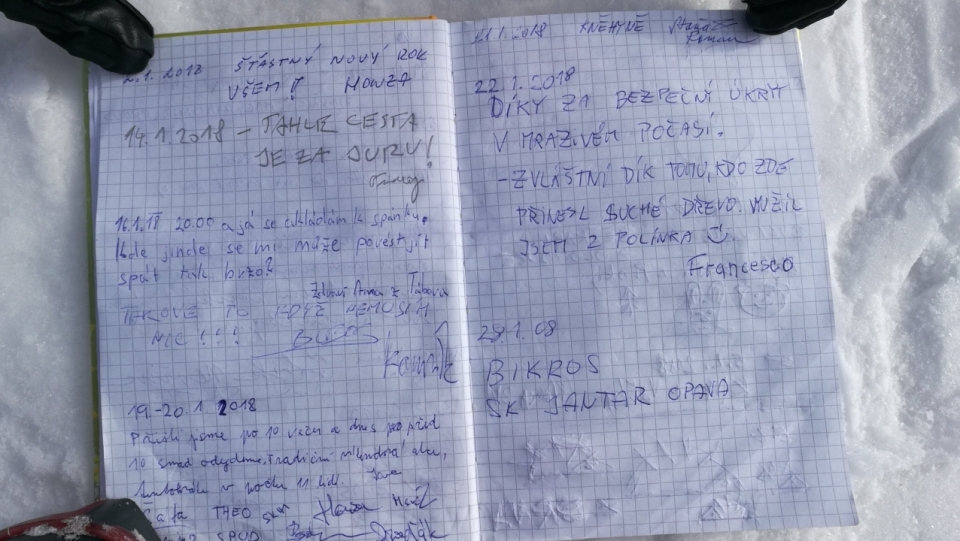 2.1.2018 ŠŤASTNÝ NOVÝ ROK
VŠEM! HONZA
14.1.2018 - TAHLE CESTA
JE ZA DURU!
16.1.18 20.00 a já se ukládám k spánku.
Kde jinde se mi může poveštjit
spát tak brzo?
Zdraví Anna z Tábora
TAKOVÉ TO KDYŽ NEMUSÍŠ
NIC!!!
19.-20.1.2018
Přišli jsme po 10 večer a dnes po před
10 snad odejdeme. Tradiční akce,
v počtu 11 lidí.
THEO
SPUD Dvořák
21.1.2018 KNĚHYNĚ
22.1.2018
DÍKY ZA BEZPEČNÝ ÚKRYT
V MRAZIVÉM POČASÍ.
-ZVLÁŠTNÍ DÍK TOMU, KDO ZDE
PŘINESL SUCHÉ DŘEVO. UŽIL
JSEM 2 POLÍNKA
Francesco
29.1.08
BIKROS
SK JANTAR OPAVA